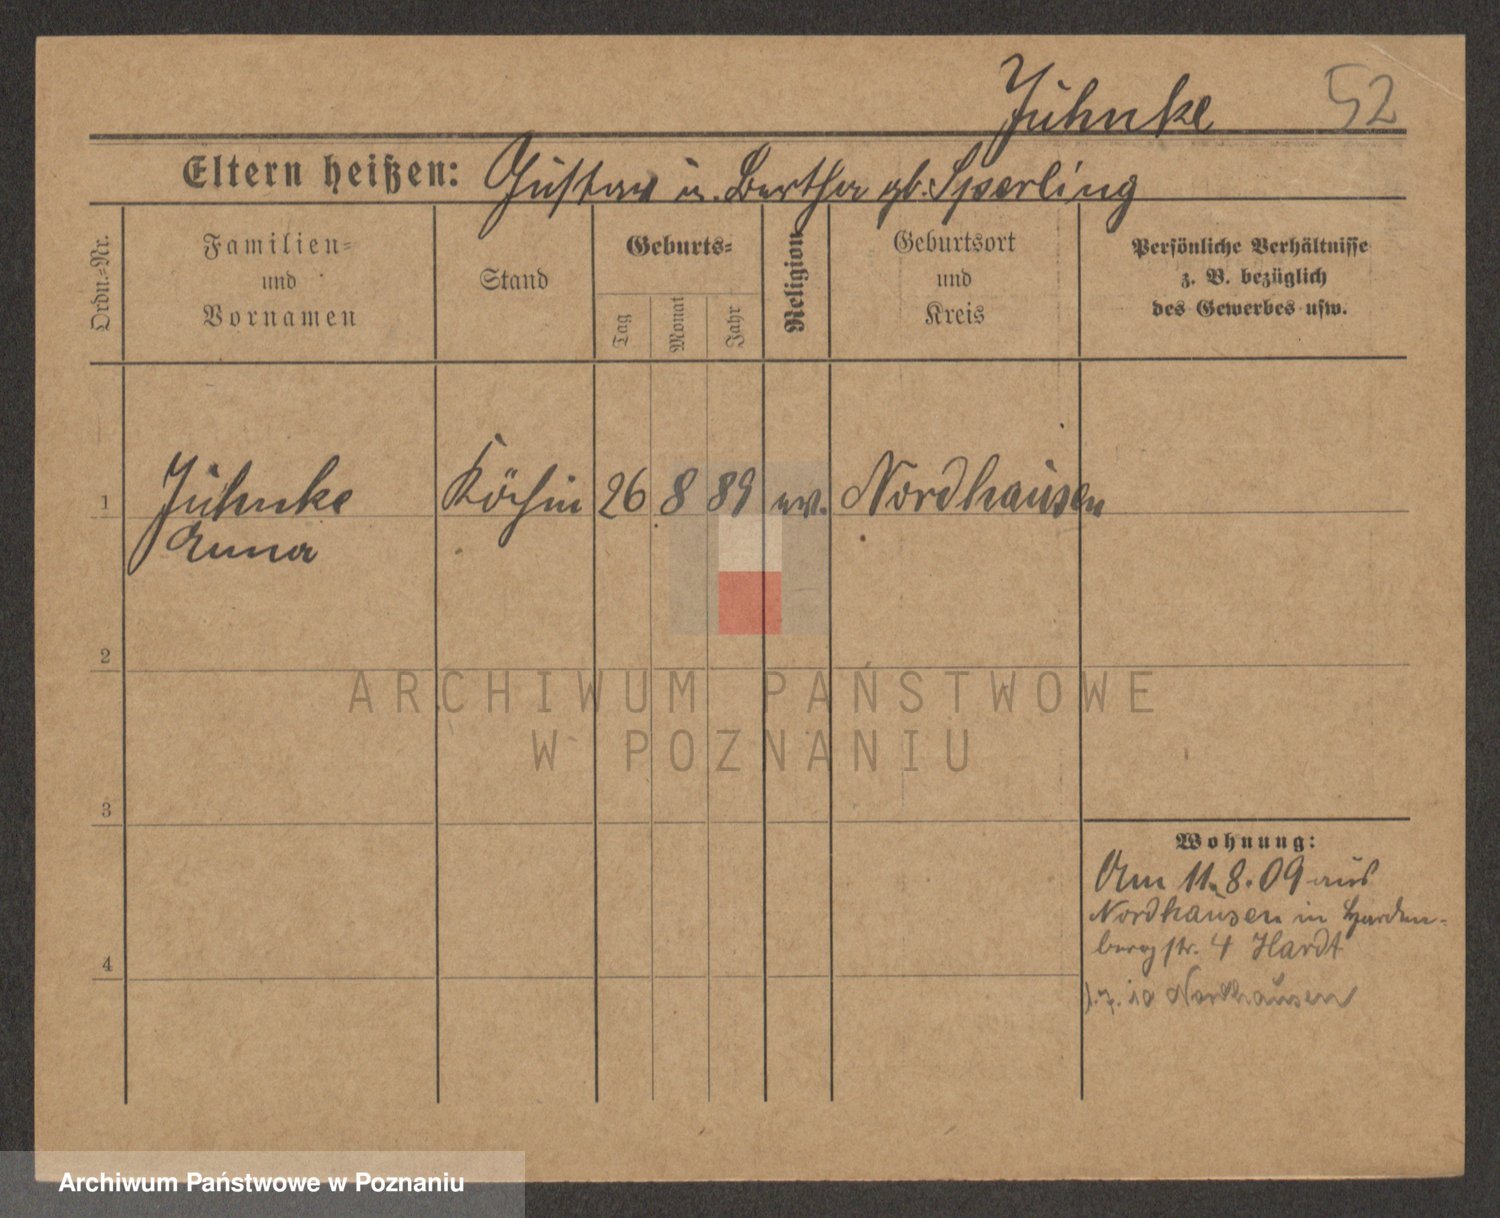 Juhnke 52
Eltern heißen: Gustav u. Bertha gb. Sperling
Ordn.-Nr.
Familien-
und
Vornamen
Stand
Geburts-
Tag
Monat
Jahr
Religion
Geburtsort
und
Kreis
Persönliche Verhältnisse
z. B. bezüglich
des Gewerbes usw.
1 Juhnke Köchin 26 8 89 ev. Nordhausen
Anna
2
3
4
Wohnung:
Am 11.8.09 aus
Nordhausen in Harden-
bergstr. 4 Hardt
Nordhausen
ARCHIWUM PAŃSTWOWE
W POZNANIU
Archiwum Państwowe w Poznaniu